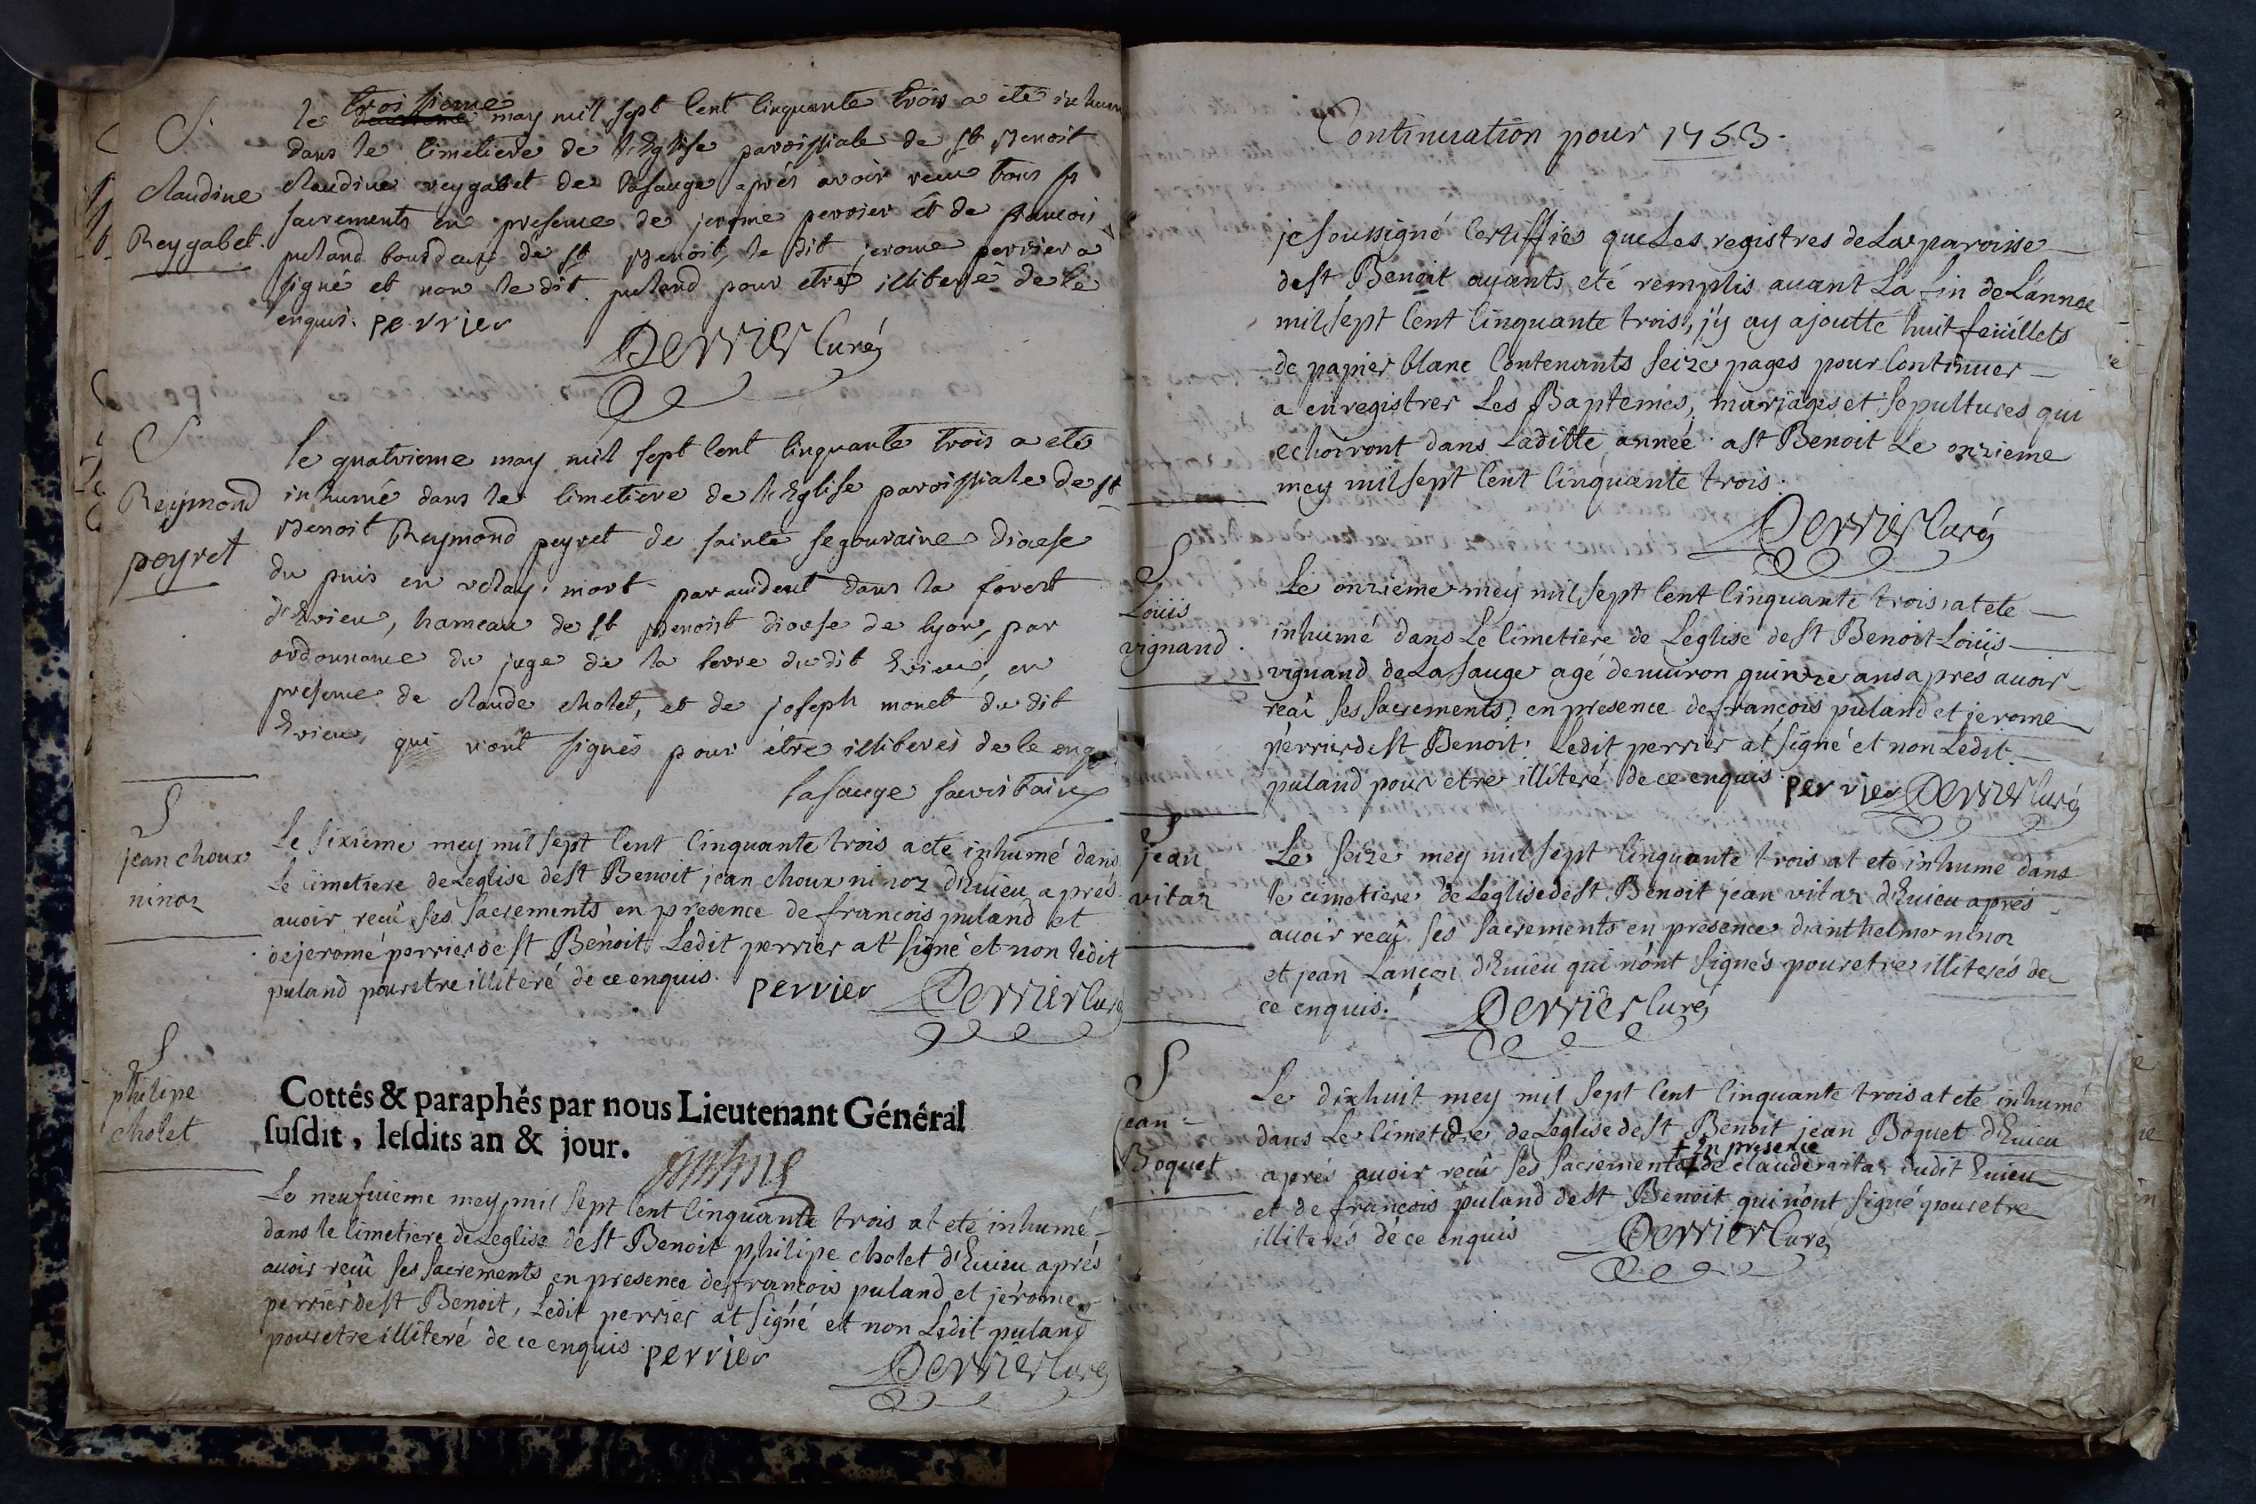 S.
Claudine
Reygabet.
le troisieme may mil sept Cent Cinquante trois a eté inhum
dans le Cimetiere de l'Eglise paroissiale de st Benoit
claudine reygabet de lasauge aprés avoir recu tous ses
sacrements en presence de jerome perrier et de francois
puland bourdeau de st Benoit, le dit jerome perrier a
signé et non le dit puland pour etre illiteré de ce
enquis. perrier
Perrier Curé
S
Reymond
peyret
le quatrieme may mil sept Cent Cinquante trois a eté
inhumé dans le Cimetiere de l'Eglise paroissiale de st
Benoit Reymond peyret de sainte segouraine diocese
du puis en velay, mort par accident dans la forest
d'Evieu, hameau de st Benoist diocese de lyon, par
ordonnance du juge de la terre du dit Evieu, en
presence de claude cholet, et de joseph monet du dit
Evieu, qui n'ont signés pour étre illiterés de ce enq
lasauge sacristain
S
jean choux
ninoz
Le sixieme mey mil sept Cent Cinquante trois a eté inhumé dans
Le cimetiere de Leglise de st Benoit jean choux ninoz d'Euieu aprés
auoir recû ses sacrements en presence de francois puland et
de jerome perrier de st Benoit. Ledit perrier at signé et non ledit
puland pouretre illiteré de ce enquis. perrier Perrier Curé
S
philipe
cholet
Cottés & paraphés par nous Lieutenant Général
susdit, lesdits an & jour.
Le neufuieme mey mil sept Cent Cinquante trois at eté inhumé
dans le Cimetiere de Leglise de st Benoit philipe cholet d'Euieu aprés
auoir recû ses sacrements en presence de francois puland et jerome
perrier de st Benoit, Ledit perrier at signé et non Ledit puland
pouretre illiteré de ce enquis. perrier Perrier Curé
Continuation pour 1753.
je soussigné Certiffies que Les registres de La paroisse
de st Benoit ayants eté remplis auant La fin de Lannee
mil sept Cent Cinquante trois, j'y ay ajoutté huit feuillets
de papier blanc Contenants seize pages pour Continuer
a enregistrer Les Baptemes, mariages et sepultures qui
echoiront dans Laditte année. a st Benoit Le onzieme
mey mil sept Cent Cinquante trois.
Perrier Curé
S
Louis
vignand.
Le onzieme mey mil sept Cent Cinquante trois at eté
inhumé dans Le Cimetiere de Leglise de st Benoit Louis
vignand de La sauge agé denuiron quinze ans aprés auoir
recû ses sacrements, en presence de francois puland et jerome
perrier de st Benoit. Ledit perrier at signé et non Ledit
puland pour etre illiteré de ce enquis. perrier Perrier Curé
S
jean
vitaz
Le seize mey mil sept Cinquante trois at eté inhume dans
le cimetiere de Leglise de st Benoit jean vitaz d'Euieu aprés
auoir recû ses sacrements en presence d'anthelme ninoz
et jean Lançon d'Euieu qui n'ont signés pouretre illiterés de
ce enquis. Perrier Curé
S
jean
Boquet
Le dixhuit mey mil sept Cent Cinquante trois at eté inhumé
dans Le Cimetiere de Leglise de st Benoit jean Boquet d'Euieu
+ En presence
aprés auoir recû ses sacrements + de claude vitaz dudit Euieu
et de francois puland de st Benoit qui n'ont signé pouretre
illiterés de ce enquis Perrier Curé